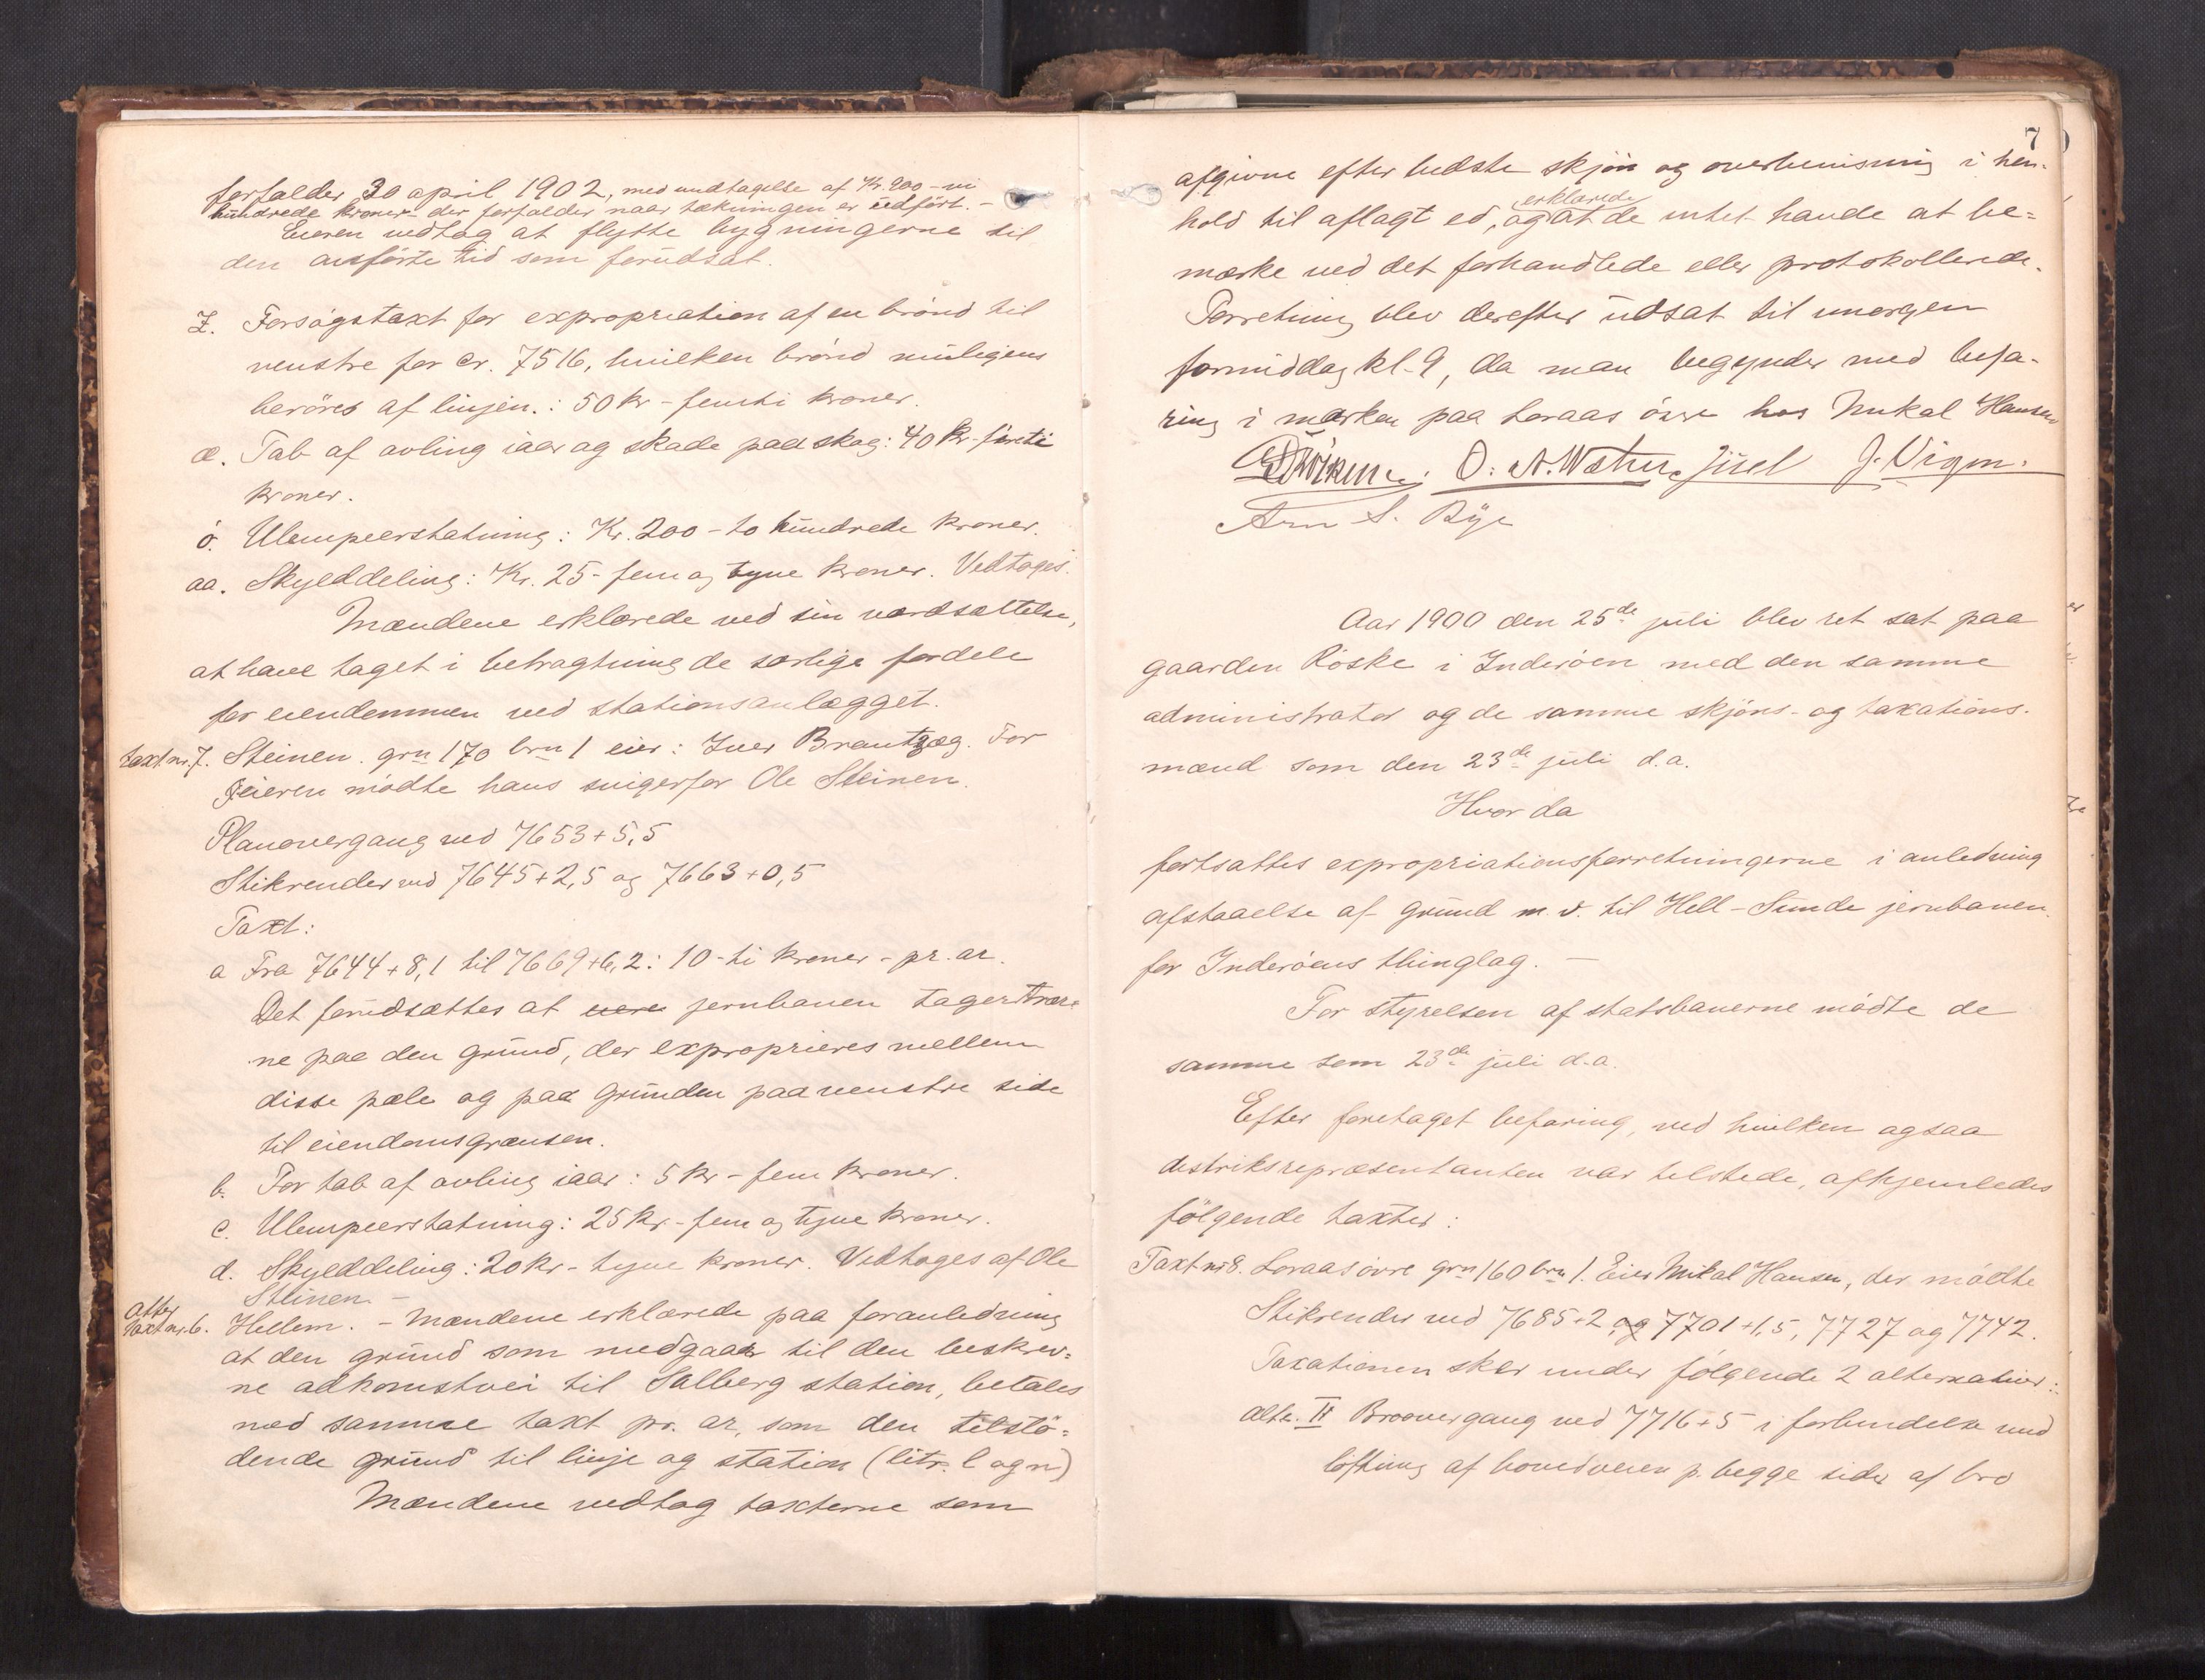 forfalder 30 april 1902, med undtagelse af Kr. 900 - ni
hundrede kroner - der forfalder naar tækningen er udført. -
Eieren vedtog at flytte bygningerne til
den anførte tid som forudsat.
z. Forsøgstaxt for expropriation af en brønd til
venstre for cr. 7516, hvilken brønd muligens
berøres af linjen.: 50 kr - femti kroner.
æ. Tab af avling iaar og skade paa skog: 40 kr - firti
kroner.
ø. Ulempeerstatning: Kr. 200 - to hundrede kroner.
aa. Skylddeling: Kr. 25 - fem og tyve kroner. Vedtages.
Mændene erklærede ved sin værdsættelse,
at have taget i betragtning de særlige fordele
for eiendommen ved stationsanlægget.
taxt nr. 7. Steinen. grn 170 brn 1 eier: Iver Brautzæg. For
eieren mødte hans svigerfar Ole Steinen.
Planovergang ved 7653 + 5,5
Stikrender ved 7645 + 2,5 og 7663 + 0,5
Taxt:
a Fra 7644 + 8,1 til 7669 + 6,2: 10 - ti kroner - pr. ar.
Det forudsættes at jernbanen tager trær-
ne paa den grund, der exproprieres mellem
disse pæle og paa grunden paa venstre side
til eiendomsgrænsen.
b. For tab af avling iaar: 5 kr - fem kroner.
c. Ulempeerstatning: 25 kr - fem og tyve kroner.
d. Skylddeling: 20 kr - tyve kroner. Vedtoges af Ole
Steinen -
atter
taxt nr. 6. Hellem. - Mændene erklærede paa foranledning
at den grund som medgaar til den beskrev-
ne adkomstvei til Salberg station, betales
med samme taxt pr. ar, som den tilstø-
dende grund til linje og station (litr. l og n)
Mændene vedtog taxterne som
7
afgivne efter bedste skjøn og overbevisning i hen-
erklærede
hold til aflagt ed, og at de intet havde at be-
mærke ved det forhandlede eller protokollerede.
Forretning blev derefter udsat til morgen
formiddag kl. 9, da man begynder med befa-
ring i marken paa Loraas øvre hos Mikal Hansen
J. Vigen.
Arn S. Bye
Aar 1900 den 25de juli blev ret sat paa
gaarden Røske i Inderøen med den samme
administrator og de samme skjøns- og taxations-
mænd som den 23de juli d.a.
Hvor da
fortsattes expropriationsforretningerne i anledning
afstaaelse af grund m. v. til Hell - Sunde jernbanen
for Inderøens thinglag. -
For styrelsen af statsbanerne mødte de
samme som 23de juli d.a.
Efter foretaget befaring, ved hvilken ogsaa
distriksrepræsentanten var tilstede, afhjemledes
følgende taxter:
Taxt nr 8. Loraas øvre grn 160 brn 1. Eier Mikal Hansen, der mødte
Stikrender ved 7685 + 2 og 7701 + 1,5, 7727 og 7742.
Taxationen sker under følgende 2 alternativer:
Alte. II Broovergang ved 7716 + 5 i forbindelse med
løftning af hovedveien p. begge sider af bro